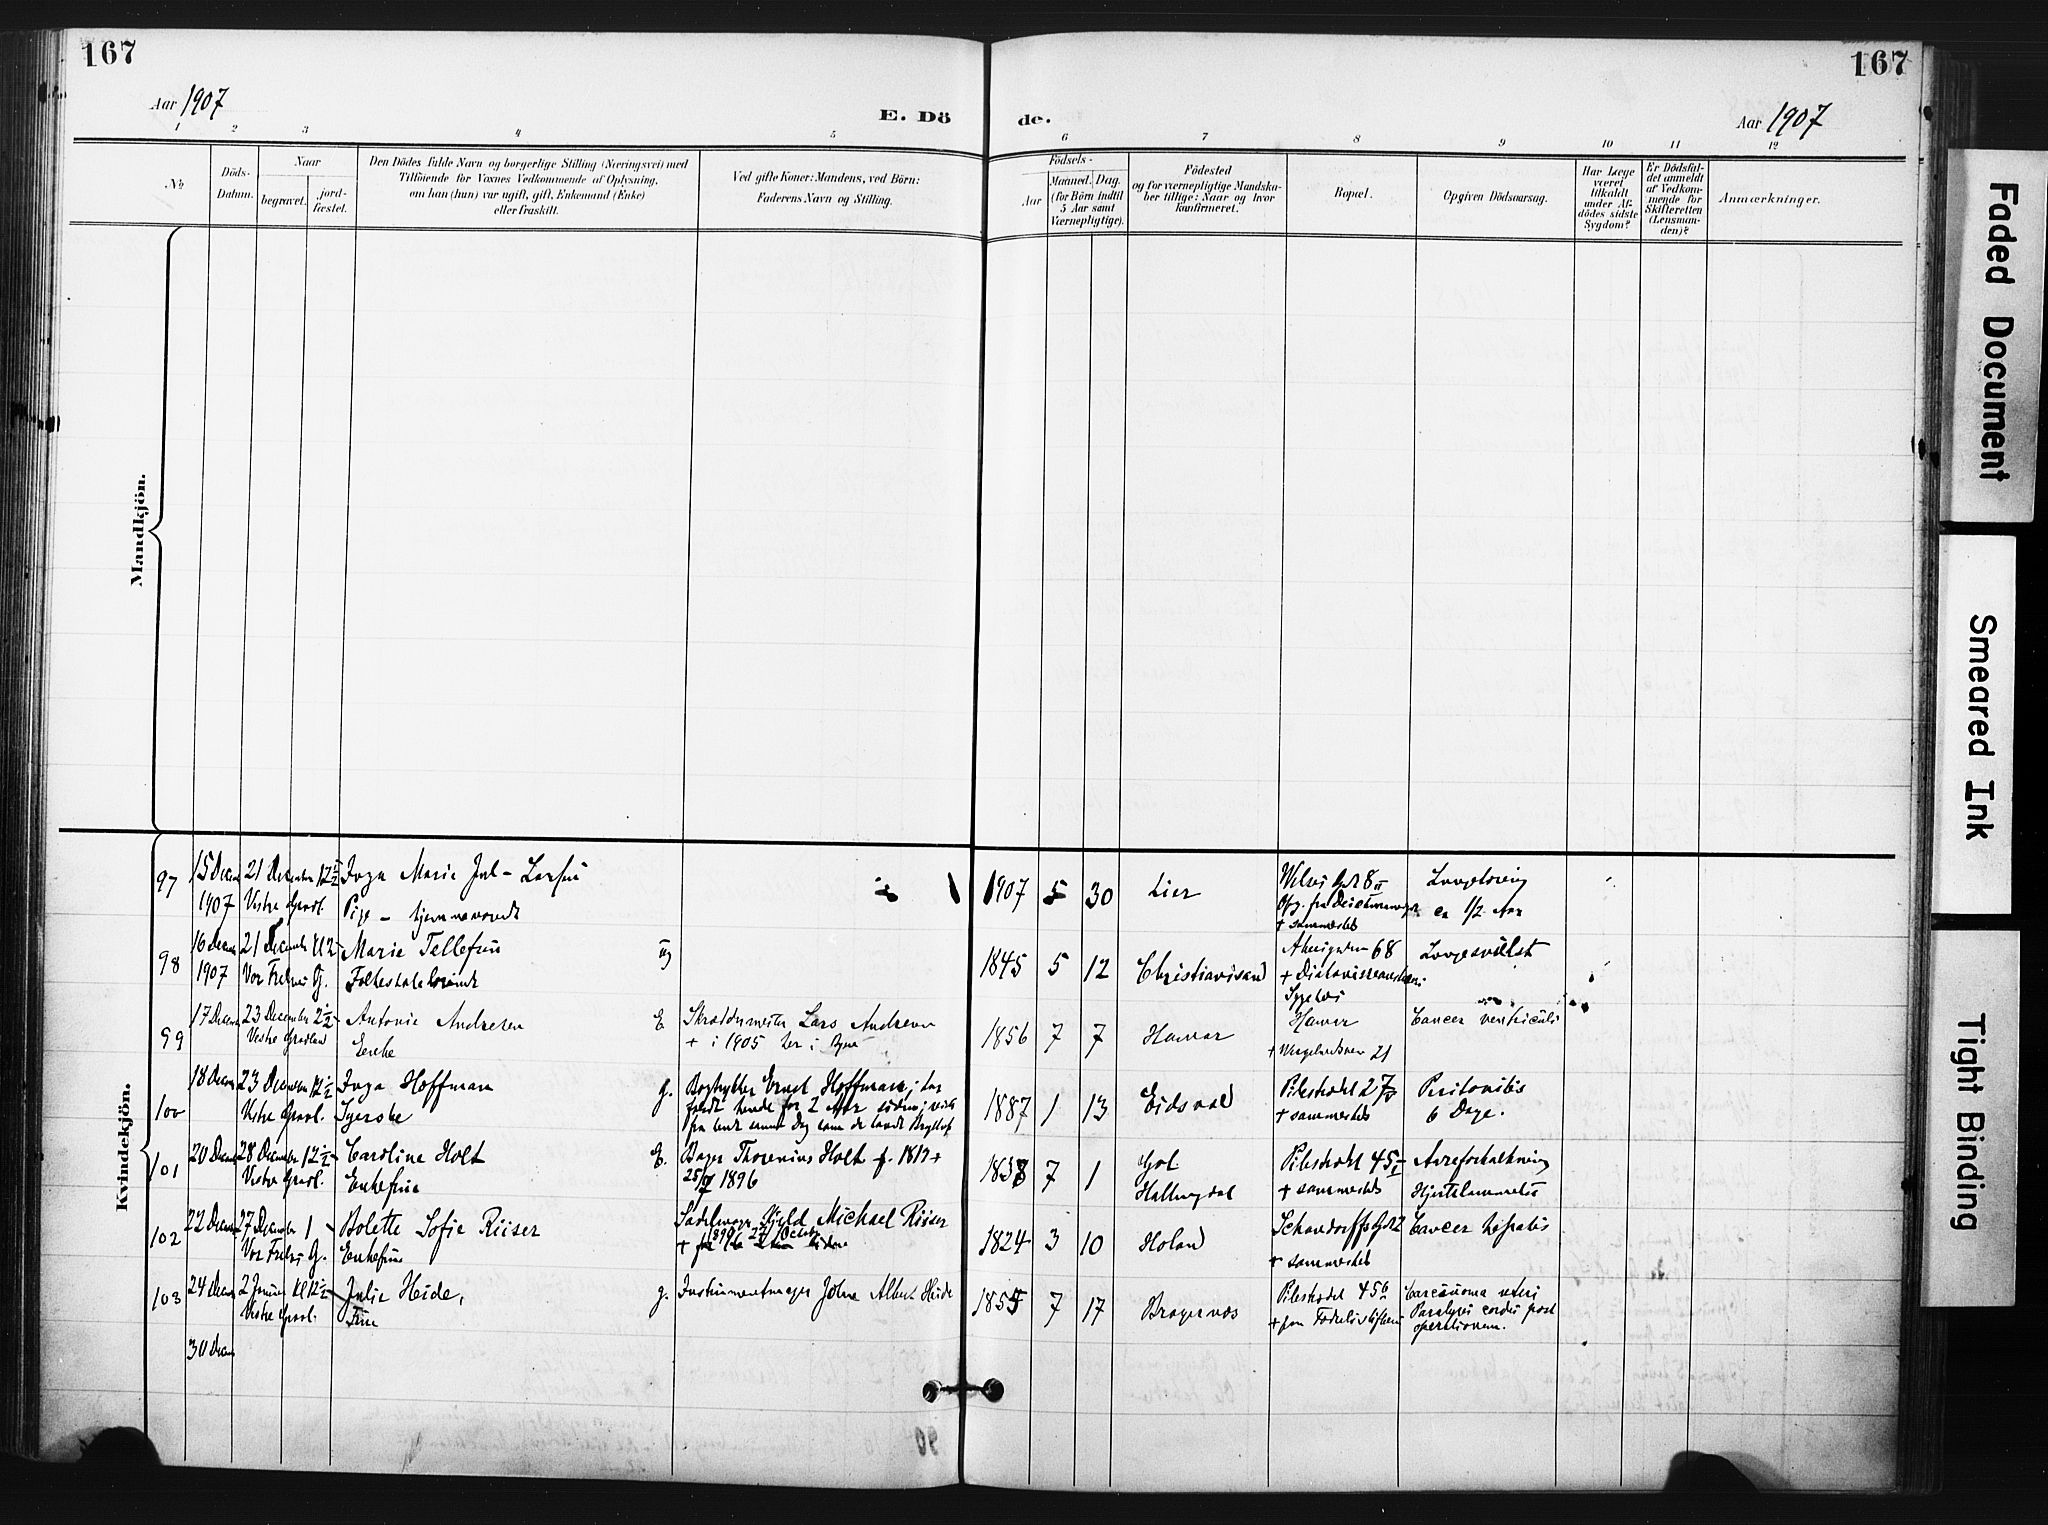 167
167
Aar 1907
E. Dö
de.
Aar 1907
1 2 3 4 5 6 7 8 9 10 11 12
No
Döds-
Datum.
Naar
begravet.
jord-
fæstet.
Den Dödes fulde Navn og borgerlige Stilling (Næringsvei) med
Tilföiende for Voxnes Vedkommende af Oplysning,
om han (hun) var ugift, gift, Enkemand (Enke)
eller fraskilt.
Ved gifte Koner: Mandens, ved Börn:
Faderens Navn og Stilling.
Födsels-
Aar
Maaned. Dag.
(for Börn indtil
5 Aar samt
Værnepligtige).
Födested
og for værnepligtige Mandska-
ber tillige: Naar og hvor
konfirmeret.
Bopæl.
Opgiven Dödsaarsag.
Har Læge
været
tilkaldt
under Af-
dödes sidste
Sygdom?
Er Dödsfal-
det anmeldt
af Vedkom-
mende for
Skifteretten
(Lensman-
den)?
Anmærkninger.
Mandkjön.
Kvindekjön.
97
15 Decem
1907
21 December 12½
Vestre Gravl.
Inga Marie Jul-Larsen
Pige - hjemmeværende
1907 5 30
Lier
+ sammesteds
ca 1/2 Aar
98
16 Decem
1907
21 December Kl 2
Vor Frelsers G.
Marie Tellefsen
ug
1845 5 12
Christianssand
68
+ Diakonisseanstaltens
Sygehus
99
17 Decem
23 December 2½
Vestre Gravlund
Antonie Andresen
Enke
E
Skræddermester Lars Andresen
+ i 1905 her i Byen
1856 7 7
Hamar
Hamar
+ Wergelandsveien 21
Cancer ventriculi
100
18 Decem
23 Decem 12½
Vestre Gravl.
Inga Hoffman
Syerske
g.
Bogtrykker Ernst Hoffman; har
forladt hende for 2 Aar siden; reiste
fra hende samme Dag som de havde Bryllup
1887 1 13
Eidsvold
Pilestrædet 27
+ sammesteds
Peritonitis
6 Dage.
101
20 Decem
28 December 12½
Vestre Gravl.
Caroline Holt
Enkefrue
E.
Bager Thorenius Holt f. 1817 +
25/7 1896
1838 7 1
Gol
Hallingdal
Pilestrædet 45
+ sammesteds
Areforkalkning
Hjertelammelse
102
22 Decem
27 December 1
Vor Frelsers G.
Bolette Sofie Riiser
Enkefrue
Sadelmager Kjeld Michael Riiser
1824 3 10
Holand
Schandorffs Gd 2
+ sammesteds
Cancer hepatis
103
24 Decem
2 Januar Kl 12½
Vestre Gravl.
Julie Heide,
Frue
g.
Instrumentmager John Albert Heide
1855 7 17
Bragernæs
Pilestrædet 45
+ paa Fødselsstiftelsen
Carcinoma uteri
Paralysis cordis post
operationem.
30 Decem
90
Faded Document
Smeared Ink
Tight Binding